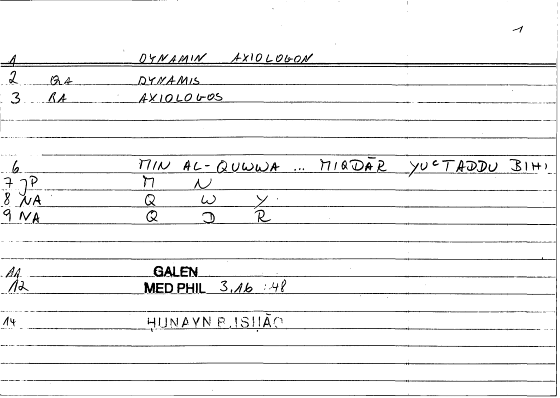 1
1 DYNAMIN AXIOLOGON
2 QA DYNAMIS
3 RA AXIOLOGOS
6 MIN AL-QUWWA ... MIQDĀR YUʿTADDU BIHI
7 JP M N
8 NA Q W Y
9 NA Q D R
11 GALEN
12 MED PHIL 3,16 :48
14 ḤUNAYN B. ISḤĀQ